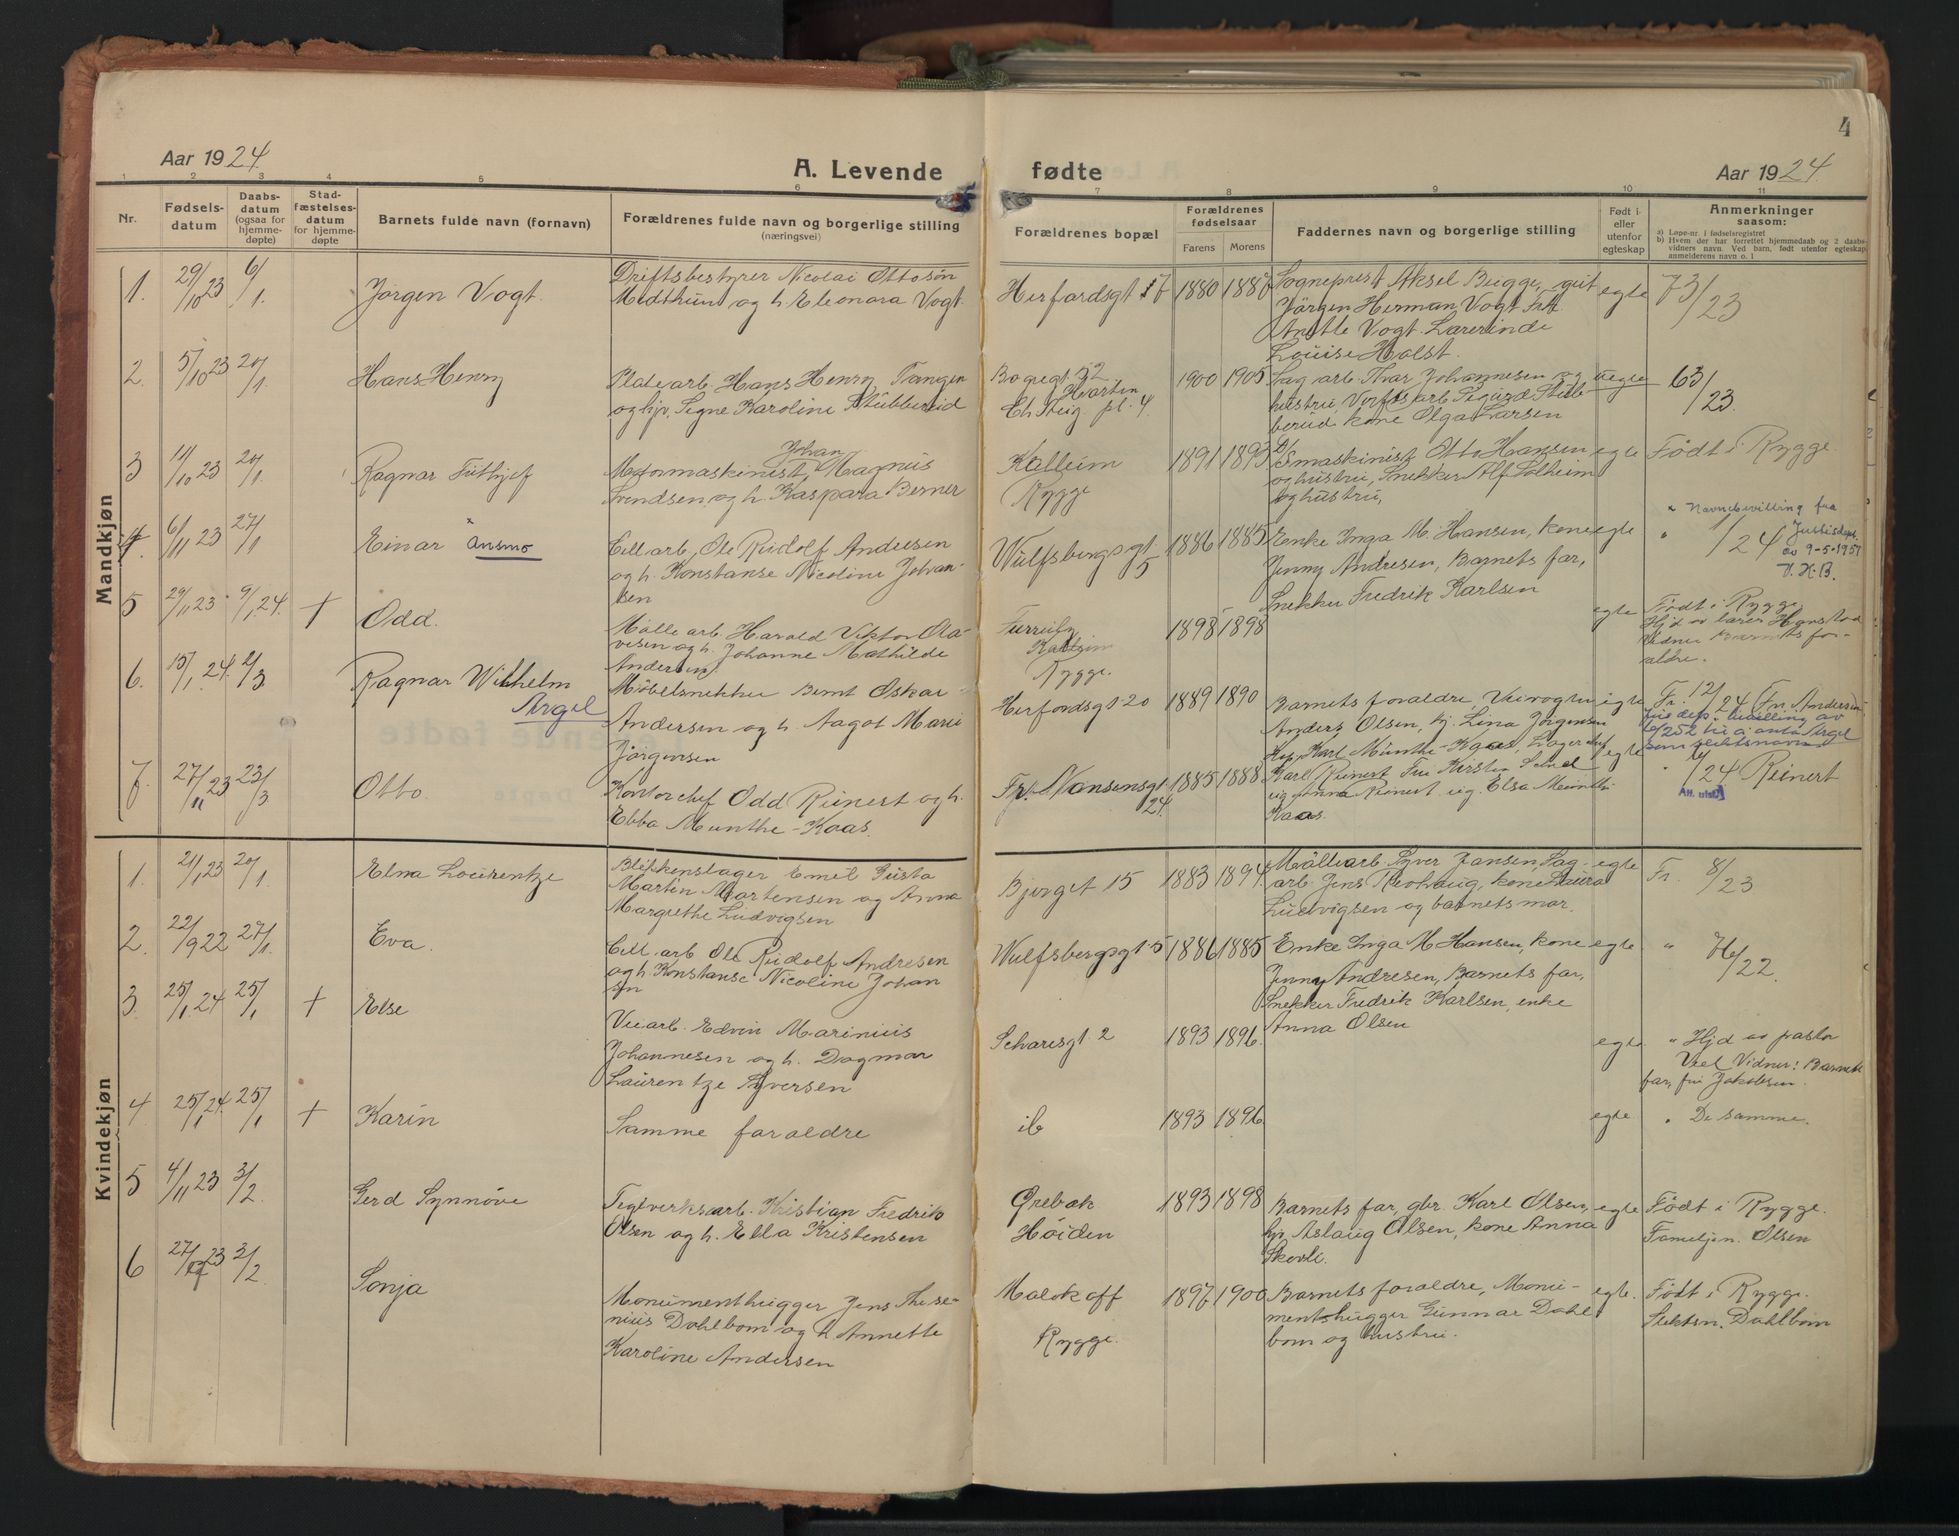 4
Aar 1924.
A. Levende
fødte
Aar 1924.
1 2 3 4 5 6 7 8 9 10 11
Nr.
Fødselsdatum
Daabsdatum (ogsaa for hjemmedøpte)
Stadfæstelsesdatum for hjemmedøpte
Barnets fulde navn (fornavn)
Forældrenes fulde navn og borgerlige stilling
(næringsvei)
Forældrenes bopæl
Forældrenes fødselsaar
Farens Morens
Faddernes navn og borgerlige stilling
Født i eller utenfor egteskap
Anmerkninger
saasom:
a) Løpe-nr. i fødselsregistret
b) Hvem der har forrettet hjemmedaab og 2 daabsvidners navn. Ved barn, født utenfor egteskap anmelderens navn o. l
Mandkjøn
1. 29/10 23 6/1. Jörgen Vogt.
Driftsbestyrer Nicolai Ottosön
Midthun og h. Eleonora Vogt.
Herfordsgt 17 1880 1887
Sogneprest Aksel Bugge, gut
Jörgen Herman Vogt Frk.
Anette Vogt. Lærerinde
Louise Holst.
egte 73/23
2. 5/10 23 20/1. Hans Henry
Platearb. Hans Henry Tangen
og hp. Signe Karoline Stubberud
Bogegt 52
Chr. Stuig pl. 4.
1900 1905
Sag arb. Ivar Johannesen og
hustru, Verfts arb Sigurd Stubberud kone Olga Larsen
uegte 63/23.
3 11/10 23 20/1. Ragnar Fithjof
Motormaskinist, Johan Magnus
Svendsen og h. Kaspara Berner
Kalleim
Rygge
1891 1893
Bmaskinist Otto Hansen
og hustru, Snekker Alf Solheim
og hustru,
egte Født i Rygge.
4. 6/11 23 27/1 Einar × Ansmo
Cell. arb. Ole Rudolf Andresen
og h. Konstanse Nicoline Johansen
Wulfsbergsgt 5
1886 1885
Enke Inga M. Hansen, kone
Jenny Andresen, Barnets far,
Snekker Fredrik Karlsen
egte " 1/24
× Navnebevilling fra
Justisdept.
av 9-5-1951
V. H.B.
5 29/11 23 9/1 24. + Odd.
Mølle arb. Harald Viktor Olavesen og h. Johanne Mathilde
Andersen
Furruly
Kalleim
Rygge.
1898 1898
egte Født i Rygge
Hjd av lærer Hanstad
Vidner Barnets foraldre.
6. 15/1 24. 2/3 Ragnar Wilhelm
Argel
Möbelsnekker Bernt Oskar
Andersen og h. Aagot Marie
Jörgensen
Herfordsgt 20 1889 1890
Barnets foraldre, Veivogter
Anders Olsen, hj. Lina Jörgensen
egte Fr. 12/24 (Fn. Andersen)
Jus dep. bevilling av
som slektsnavn
7. 27/11 23 23/3. Otto.
Kontorchef Odd Reinert og h.
Ebba Munthe-Kaas.
Fr. Nansensgt 24.
1885 1888
Karl Munthe-Kaas, Lagerchef
Karl Reinert Fru Kirsten
og Anna Reinert og Elsa Munthe
Kaas.
egte " 4/24 Reinert
Att. utst.
Kvindekjøn
1. 21/1 23 20/1. Elna Lourentze
Blikkenslager Emil Gusta
Martin Martensen og Anna
Margrethe Ludvigsen
Bjergt 15 1883 1894
Mölle arb. Syver Jansen, Sagarb. Jens Revhaug, kone Laura
Ludvigsen og barnets mor.
egte Fr. 8/23
2. 22/9 22 27/1. Eva.
Cell. arb Ole Rudolf Andresen
og h. Konstanse Nicoline Johansen
Wulfsbergsgt 5 1886 1885
Enke Inga M Hansen, kone
Jenny Andresen, Barnets far,
Snekker Fredrik Karlsen, enke
Anna Olsen
egte " 76/22.
3. 25/1 24. 25/1 + Else
Veiarb. Edvin Marinius
Johannesen og h. Dagmar
Laurentze Syversen
Schavesgt 2 1893 1896.
egte " Hjd av pastor
Veel Vidner: Barnets
far, fru Jakobsen.
4 25/1 24. 25/1 + Karin
Samme foraldre
ib 1893 1896
egte " De samme.
5 4/11 23 3/2. Gerd Synnöve
Teglverksarb. Kristian Fredrik
Olsen og h. Ella Kristensen
Ørebæk
Höiden
1893 1898
Barnets far, gbr. Karl Olsen,
hp. Aslaug Olsen, kone Anna
Skovli.
egte Født i Rygge.
Familjen. Olsen
6 27/12 23 3/2. Sonja
Monumenthugger Jens Thisenius Dahlbom og h Annette
Karoline Andersen
Malakoff
Rygge.
1897 1900
Barnets foraldre, Monumentshugger Gunnar Dahlbom og hustru.
egte. Født i Rygge.
Slektsn. Dahlbom